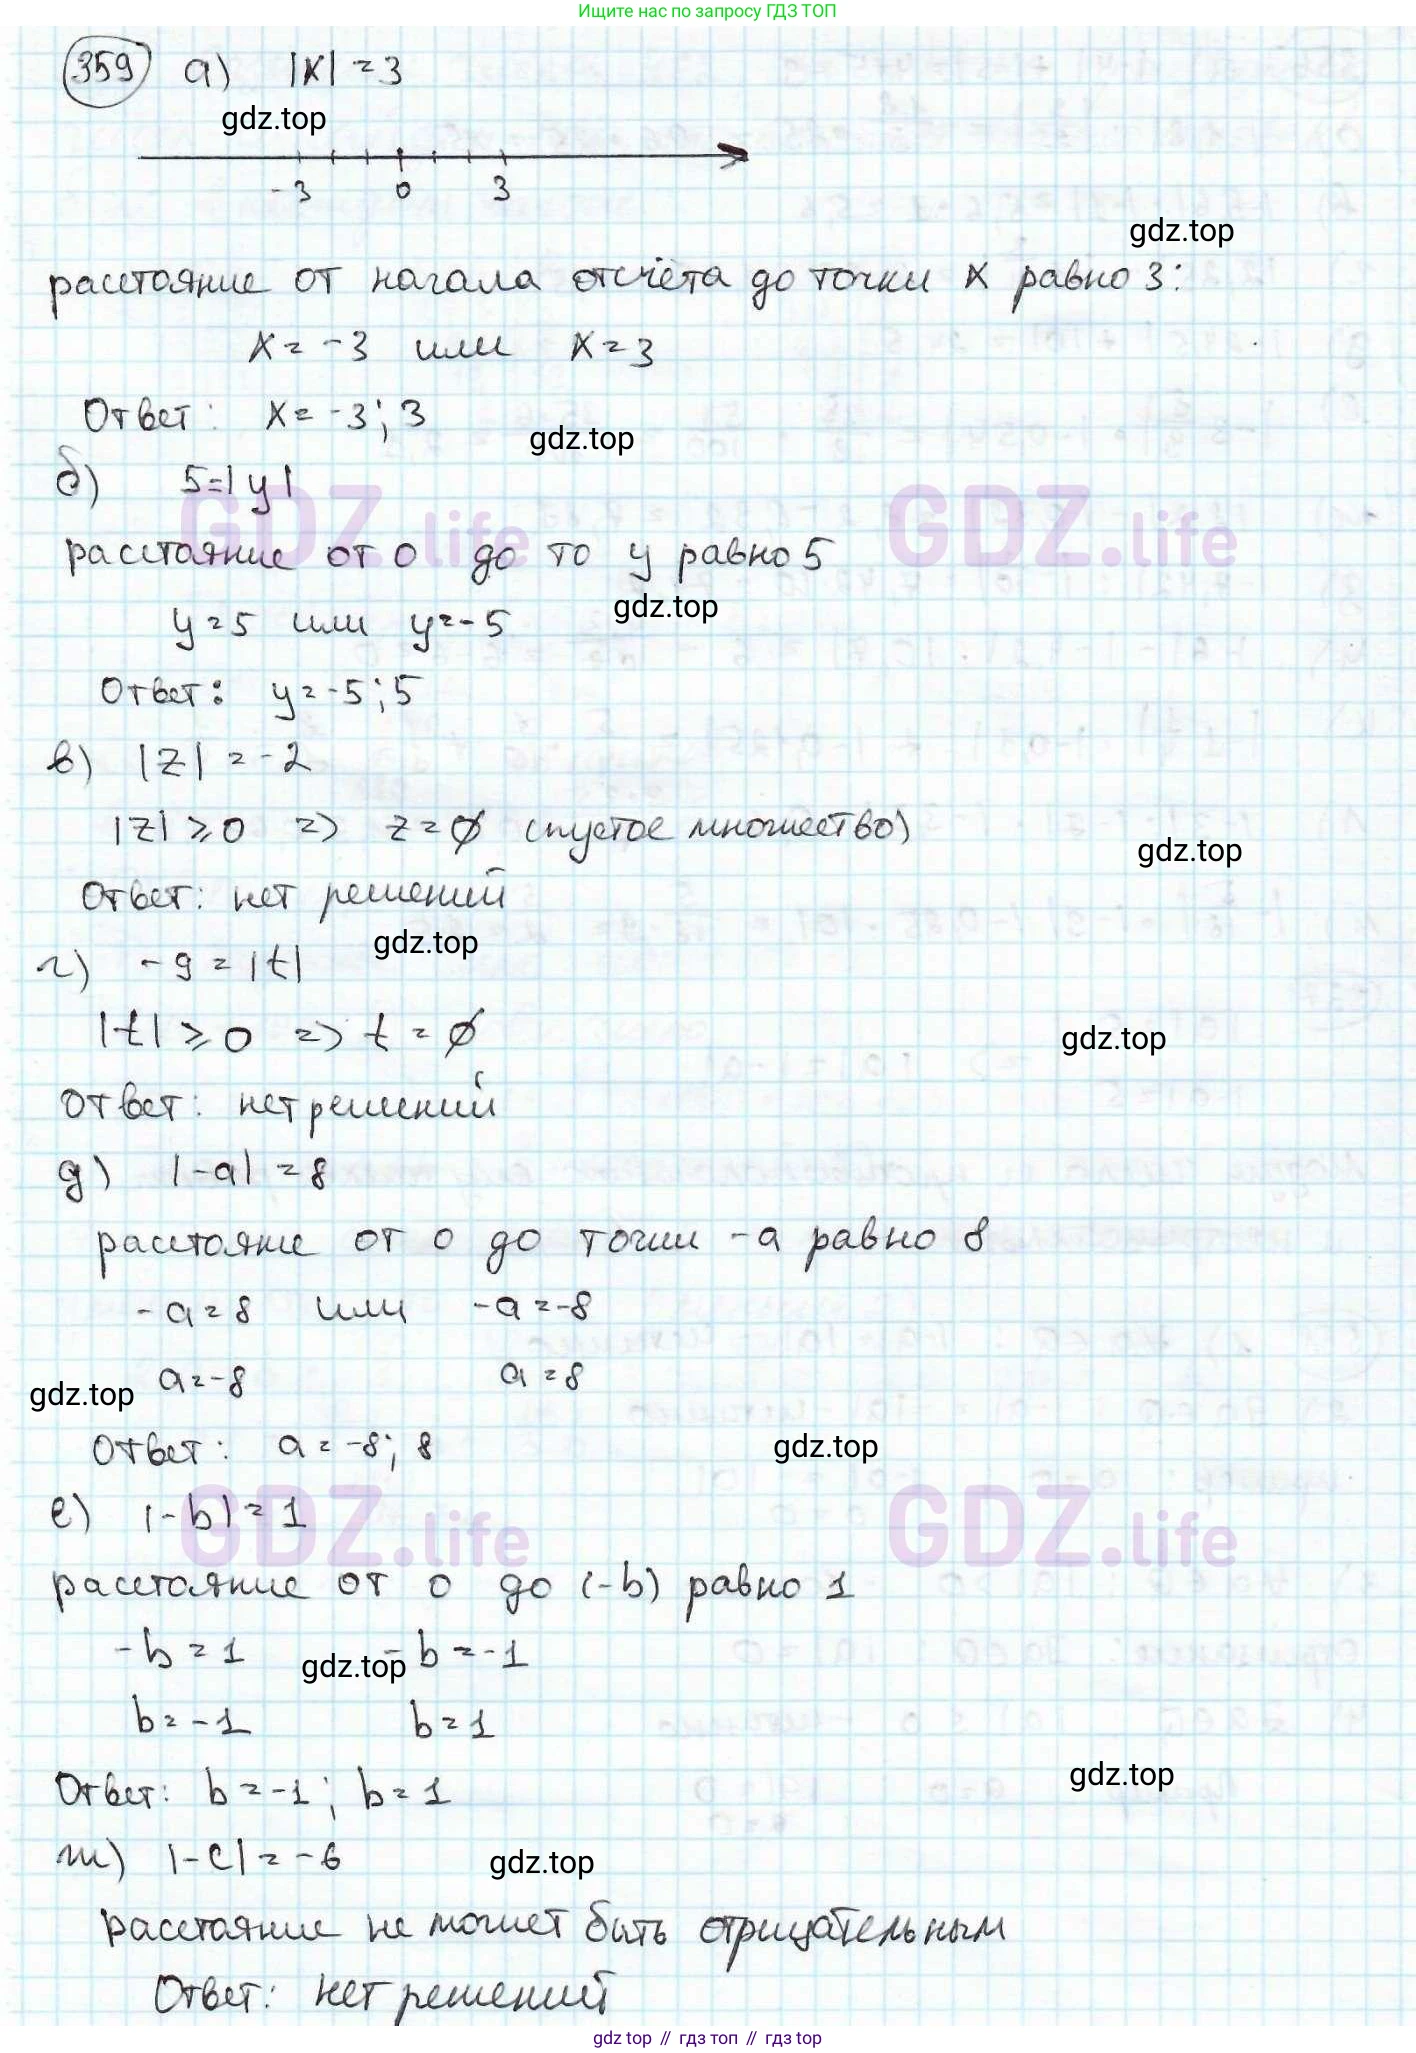 Ищите нас по запросу ГДЗ ТОП
359 а) |x| = 3
gdz.top
-3 0 3
gdz.top
расстояние от начала отсчёта до точки x равно 3:
x = -3 или x = 3
Ответ: x = -3; 3
gdz.top
б) 5 = |y|
GDZ.life GDZ.life
расстояние от 0 до то y равно 5
gdz.top
y = 5 или y = -5
Ответ: y = -5; 5
в) |z| = -2
|z| ⩾ 0 => z = ∅ (пустое множество)
gdz.top
Ответ: нет решений
gdz.top
г) -9 = |t|
|t| ⩾ 0 => t = ∅
gdz.top
Ответ: нет решений
д) |-a| = 8
расстояние от 0 до точки -a равно 8
-a = 8 или -a = -8
a = -8 a = 8
gdz.top
Ответ: a = -8; 8
gdz.top
е) |-b| = 1
GDZ.life GDZ.life
расстояние от 0 до (-b) равно 1
-b = 1 -b = -1
gdz.top
b = -1 b = 1
Ответ: b = -1; b = 1
gdz.top
ж) |-c| = -6
gdz.top
расстояние не может быть отрицательным
Ответ: нет решений
gdz top // гдз топ // гдз top